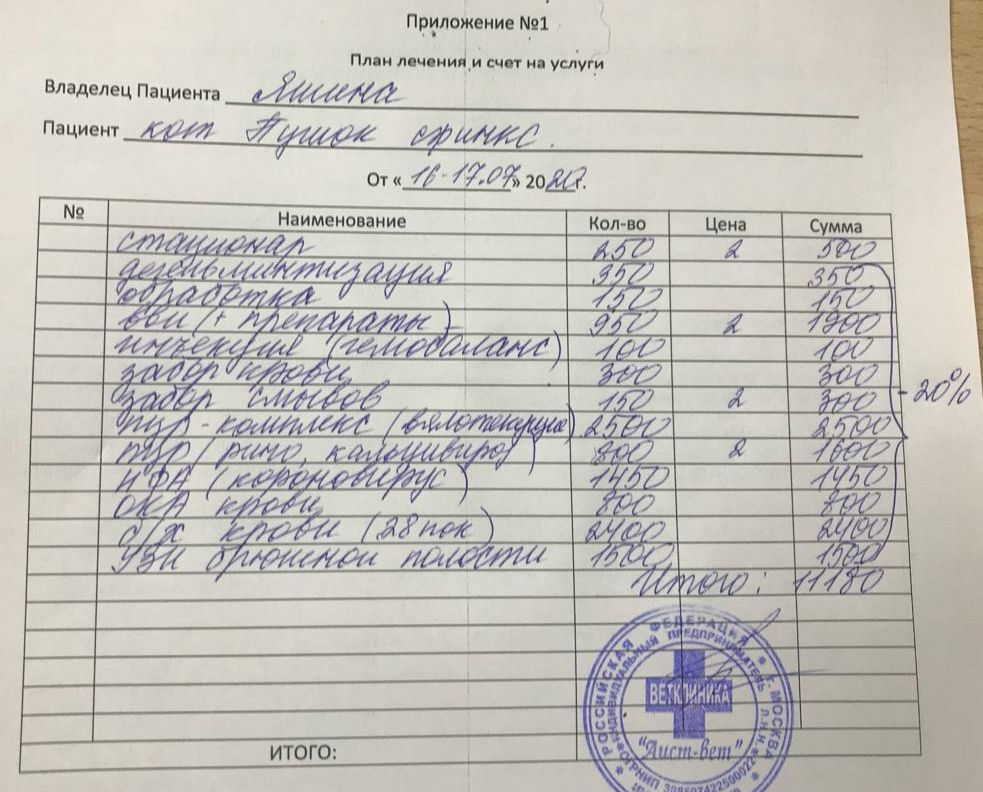 Приложение №1
План лечения и счет на услуги
Владелец Пациента Яшина
Пациент кот Пушок сфинкс.
От «16-17.07» 2020г.
№ Наименование Кол-во Цена Сумма
стационар 250 2 500
дегельминтизация 350 350
обработка 150 150
вви (+ препараты) 950 2 1900
инъекция (гемобаланс) 100 100
забор крови 300 300
забор смывов 150 2 300
- 20%
пцр-комплекс (вялотекущие) 2500 2500
пцр (рино, калицивироз) 800 2 1600
ИФА (короновирус) 1450 1450
ОКА крови 800 800
б/х крови (28 пок) 2400 2400
УЗИ брюшной полости 1500 1500
Итого: 11180
РОССИЙСКАЯ ФЕДЕРАЦИЯ * Г. МОСКВА
ИНДИВИДУАЛЬНЫЙ ПРЕДПРИНИМАТЕЛЬ
ВЕТКЛИНИКА
"Аист-вет"
ОГРНИП
ИТОГО: